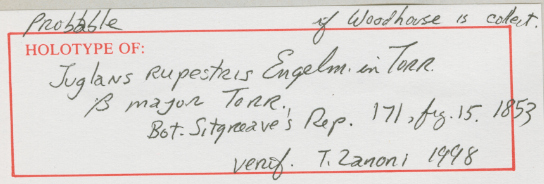 Probable if Woodhouse is collect.
HOLOTYPE OF:
Juglans rupestris Engelm. in Torr.
β major Torr.
Bot. Sitgreave's Rep. 171, fig. 15. 1853
verif. T. Zanoni 1998